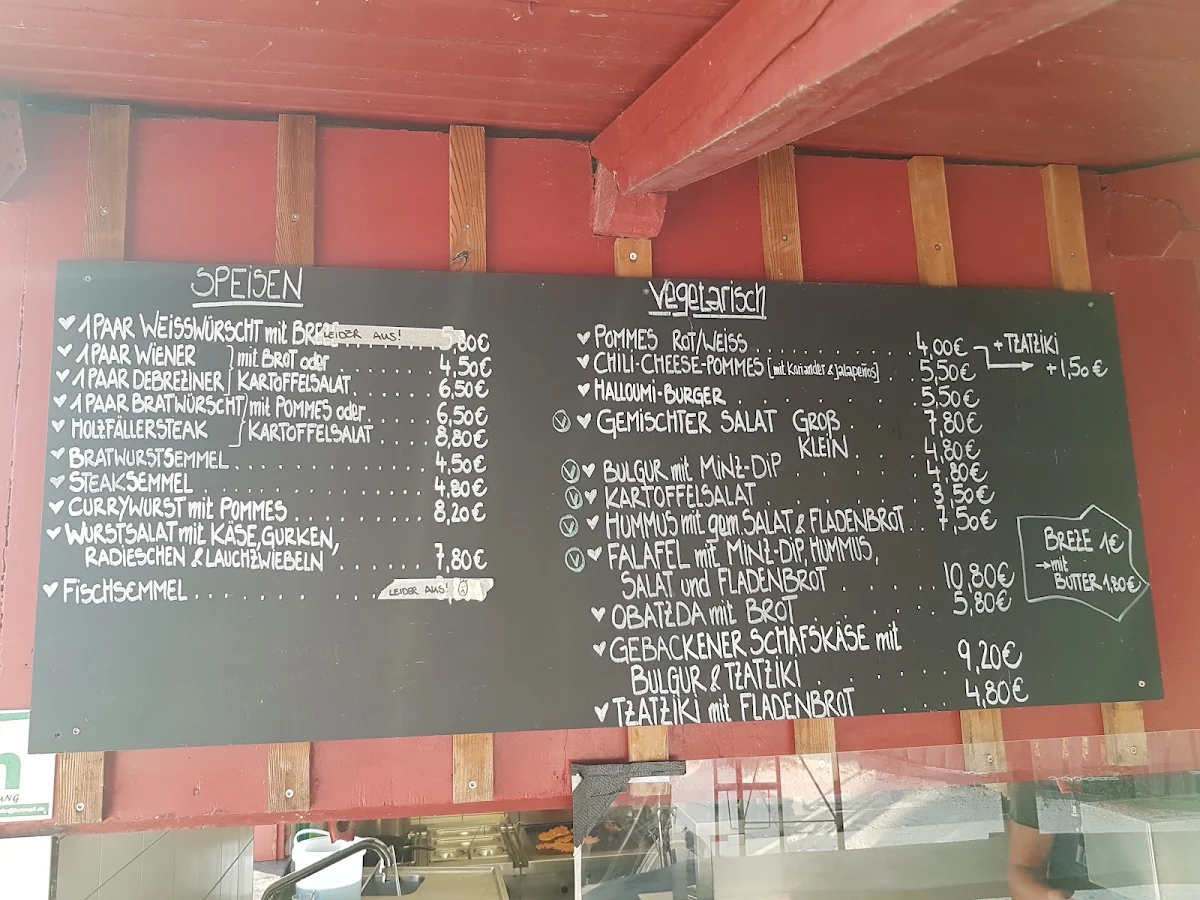 SPEISEN
♥ 1 PAAR WEISSWÜRSCHT mit BREZE LEIDER AUS! 5,80€
♥ 1 PAAR WIENER } mit BROT oder . . . . . . 4,50€
♥ 1 PAAR DEBREZINER } KARTOFFELSALAT . . . . . 6,50€
♥ 1 PAAR BRATWÜRSCHT } mit POMMES oder . . . . 6,50€
♥ HOLZFÄLLERSTEAK } KARTOFFELSALAT . . . . 8,80€
♥ BRATWURSTSEMMEL . . . . . . . . . . . . 4,50€
♥ STEAKSEMMEL . . . . . . . . . . . . . . 4,80€
♥ CURRYWURST mit POMMES . . . . . . . . . 8,20€
♥ WURSTSALAT mit KÄSE, GURKEN,
RADIESCHEN & LAUCHZWIEBELN . . . . . . . 7,80€
♥ FISCHSEMMEL . . . . . . . . . . LEIDER AUS!
Vegetarisch
♥ POMMES ROT/WEISS . . . . . . . . . . 4,00€ → + TZATZIKI
+1,50€
♥ CHILI-CHEESE-POMMES [mit Koriander & Jalapeños] . . 5,50€
♥ HALLOUMI-BURGER . . . . . . . . . . . 5,50€
Ⓥ ♥ GEMISCHTER SALAT GROß . . . . 7,80€
KLEIN . . . . 4,80€
Ⓥ ♥ BULGUR mit MINZ-DIP . . . . . . 4,80€
Ⓥ ♥ KARTOFFELSALAT . . . . . . . . . 3,50€
Ⓥ ♥ HUMMUS mit gem SALAT & FLADENBROT . . 7,50€
Ⓥ ♥ FALAFEL mit MINZ-DIP, HUMMUS,
SALAT und FLADENBROT . . . . . . 10,80€
♥ OBATZDA mit BROT . . . . . . . . 5,80€
♥ GEBACKENER SCHAFSKÄSE mit
BULGUR & TZATZIKI . . . . . . . 9,20€
♥ TZATZIKI mit FLADENBROT . . . . . 4,80€
BREZE 1€
→ mit
BUTTER 1,80€